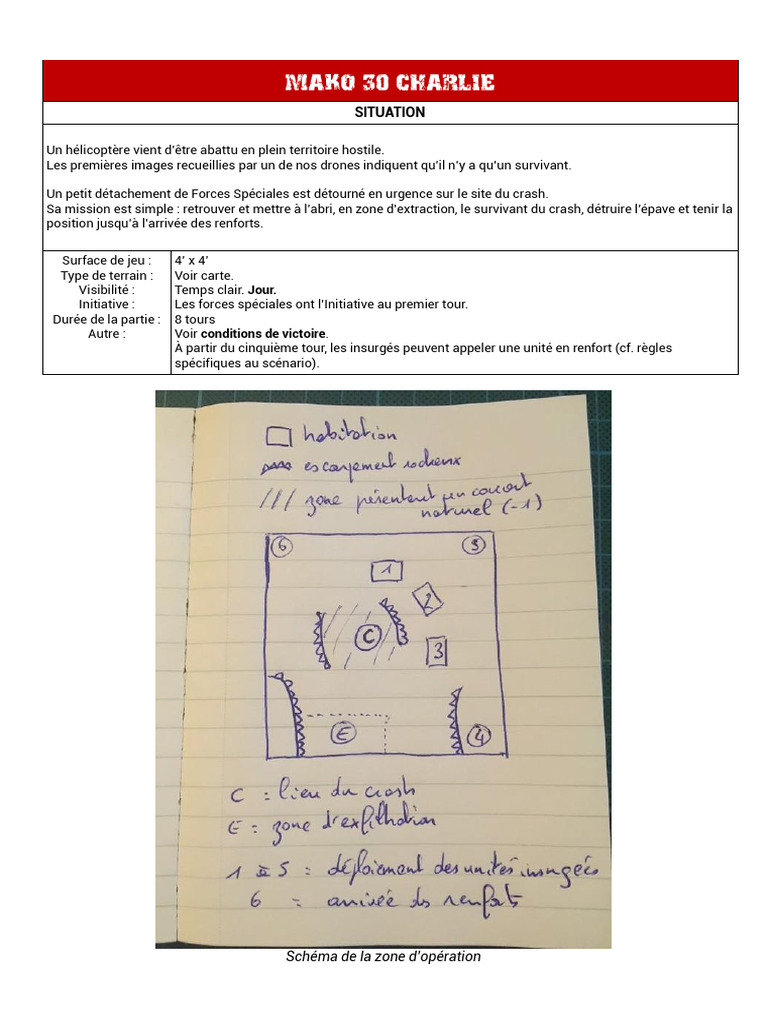 MAKO 30 CHARLIE
SITUATION
Un hélicoptère vient d'être abattu en plein territoire hostile.
Les premières images recueillies par un de nos drones indiquent qu'il n'y a qu'un survivant.
Un petit détachement de Forces Spéciales est détourné en urgence sur le site du crash.
Sa mission est simple : retrouver et mettre à l'abri, en zone d'extraction, le survivant du crash, détruire l'épave et tenir la
position jusqu'à l'arrivée des renforts.
Surface de jeu : 4' x 4'
Type de terrain : Voir carte.
Visibilité : Temps clair. Jour.
Initiative : Les forces spéciales ont l'Initiative au premier tour.
Durée de la partie : 8 tours
Autre : Voir conditions de victoire.
À partir du cinquième tour, les insurgés peuvent appeler une unité en renfort (cf. règles
spécifiques au scénario).
habitation
escarpement rocheux
/// zone présentant un couvert
naturel (-1)
6 5
1
2
C
3
E 4
C = lieu du crash
E = zone d'exfiltration
1 à 5 = déploiement des unités insurgés
6 = arrivée des renforts
Schéma de la zone d'opération